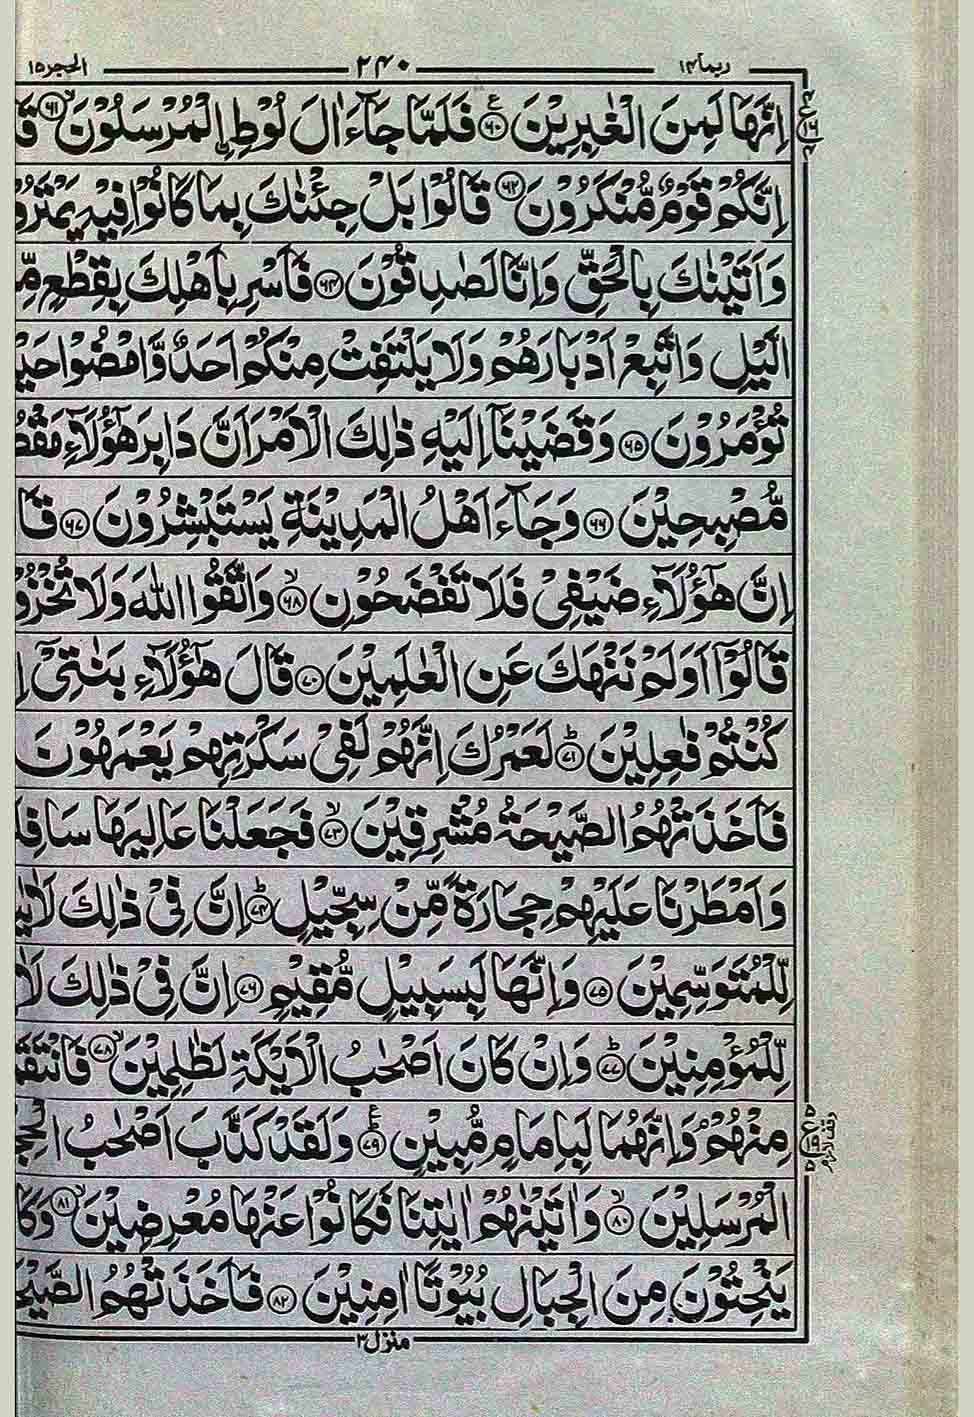 ربما ١٤ ٢٤٠ الحجر ١٥
اِنَّهَا لَمِنَ الْغٰبِرِيْنَ ﴿٦٠﴾ فَلَمَّا جَآءَ اٰلَ لُوْطِ ِۨالْمُرْسَلُوْنَ ﴿٦١﴾ قَا
اِنَّكُمْ قَوْمٌ مُّنْكَرُوْنَ ﴿٦٢﴾ قَالُوْا بَلْ جِئْنٰكَ بِمَا كَانُوْا فِيْهِ يَمْتَرُو
وَاَتَيْنٰكَ بِالْحَقِّ وَاِنَّا لَصٰدِقُوْنَ ﴿٦٤﴾ فَاَسْرِ بِاَهْلِكَ بِقِطْعٍ مِّ
الَّيْلِ وَاتَّبِعْ اَدْبَارَهُمْ وَلَا يَلْتَفِتْ مِنْكُمْ اَحَدٌ وَّامْضُوْا حَيْ
تُؤْمَرُوْنَ ﴿٦٥﴾ وَقَضَيْنَآ اِلَيْهِ ذٰلِكَ الْاَمْرَ اَنَّ دَابِرَ هٰٓؤُلَآءِ مَقْطُ
مُّصْبِحِيْنَ ﴿٦٦﴾ وَجَآءَ اَهْلُ الْمَدِيْنَةِ يَسْتَبْشِرُوْنَ ﴿٦٧﴾ قَا
اِنَّ هٰٓؤُلَآءِ ضَيْفِيْ فَلَا تَفْضَحُوْنِ ﴿٦٨﴾ وَاتَّقُوا اللّٰهَ وَلَا تُخْزُو
قَالُوْٓا اَوَلَمْ نَنْهَكَ عَنِ الْعٰلَمِيْنَ ﴿٧٠﴾ قَالَ هٰٓؤُلَآءِ بَنٰتِيْٓ اِ
كُنْتُمْ فٰعِلِيْنَ ﴿٧١﴾ لَعَمْرُكَ اِنَّهُمْ لَفِيْ سَكْرَتِهِمْ يَعْمَهُوْنَ
فَاَخَذَتْهُمُ الصَّيْحَةُ مُشْرِقِيْنَ ﴿٧٣﴾ فَجَعَلْنَا عَالِيَهَا سَافِلَ
وَاَمْطَرْنَا عَلَيْهِمْ حِجَارَةً مِّنْ سِجِّيْلٍ ﴿٧٤﴾ اِنَّ فِيْ ذٰلِكَ لَاٰيٰ
لِّلْمُتَوَسِّمِيْنَ ﴿٧٥﴾ وَاِنَّهَا لَبِسَبِيْلٍ مُّقِيْمٍ ﴿٧٦﴾ اِنَّ فِيْ ذٰلِكَ لَاٰ
لِّلْمُؤْمِنِيْنَ ﴿٧٧﴾ وَاِنْ كَانَ اَصْحٰبُ الْاَيْكَةِ لَظٰلِمِيْنَ ﴿٧٨﴾ فَانْتَقَمْ
مِنْهُمْ وَاِنَّهُمَا لَبِاِمَامٍ مُّبِيْنٍ ﴿٧٩﴾ وَلَقَدْ كَذَّبَ اَصْحٰبُ الْحِجْ
الْمُرْسَلِيْنَ ﴿٨٠﴾ وَاٰتَيْنٰهُمْ اٰيٰتِنَا فَكَانُوْا عَنْهَا مُعْرِضِيْنَ ﴿٨١﴾ وَكَا
يَنْحِتُوْنَ مِنَ الْجِبَالِ بُيُوْتًا اٰمِنِيْنَ ﴿٨٢﴾ فَاَخَذَتْهُمُ الصَّيْحَ
منزل ٣